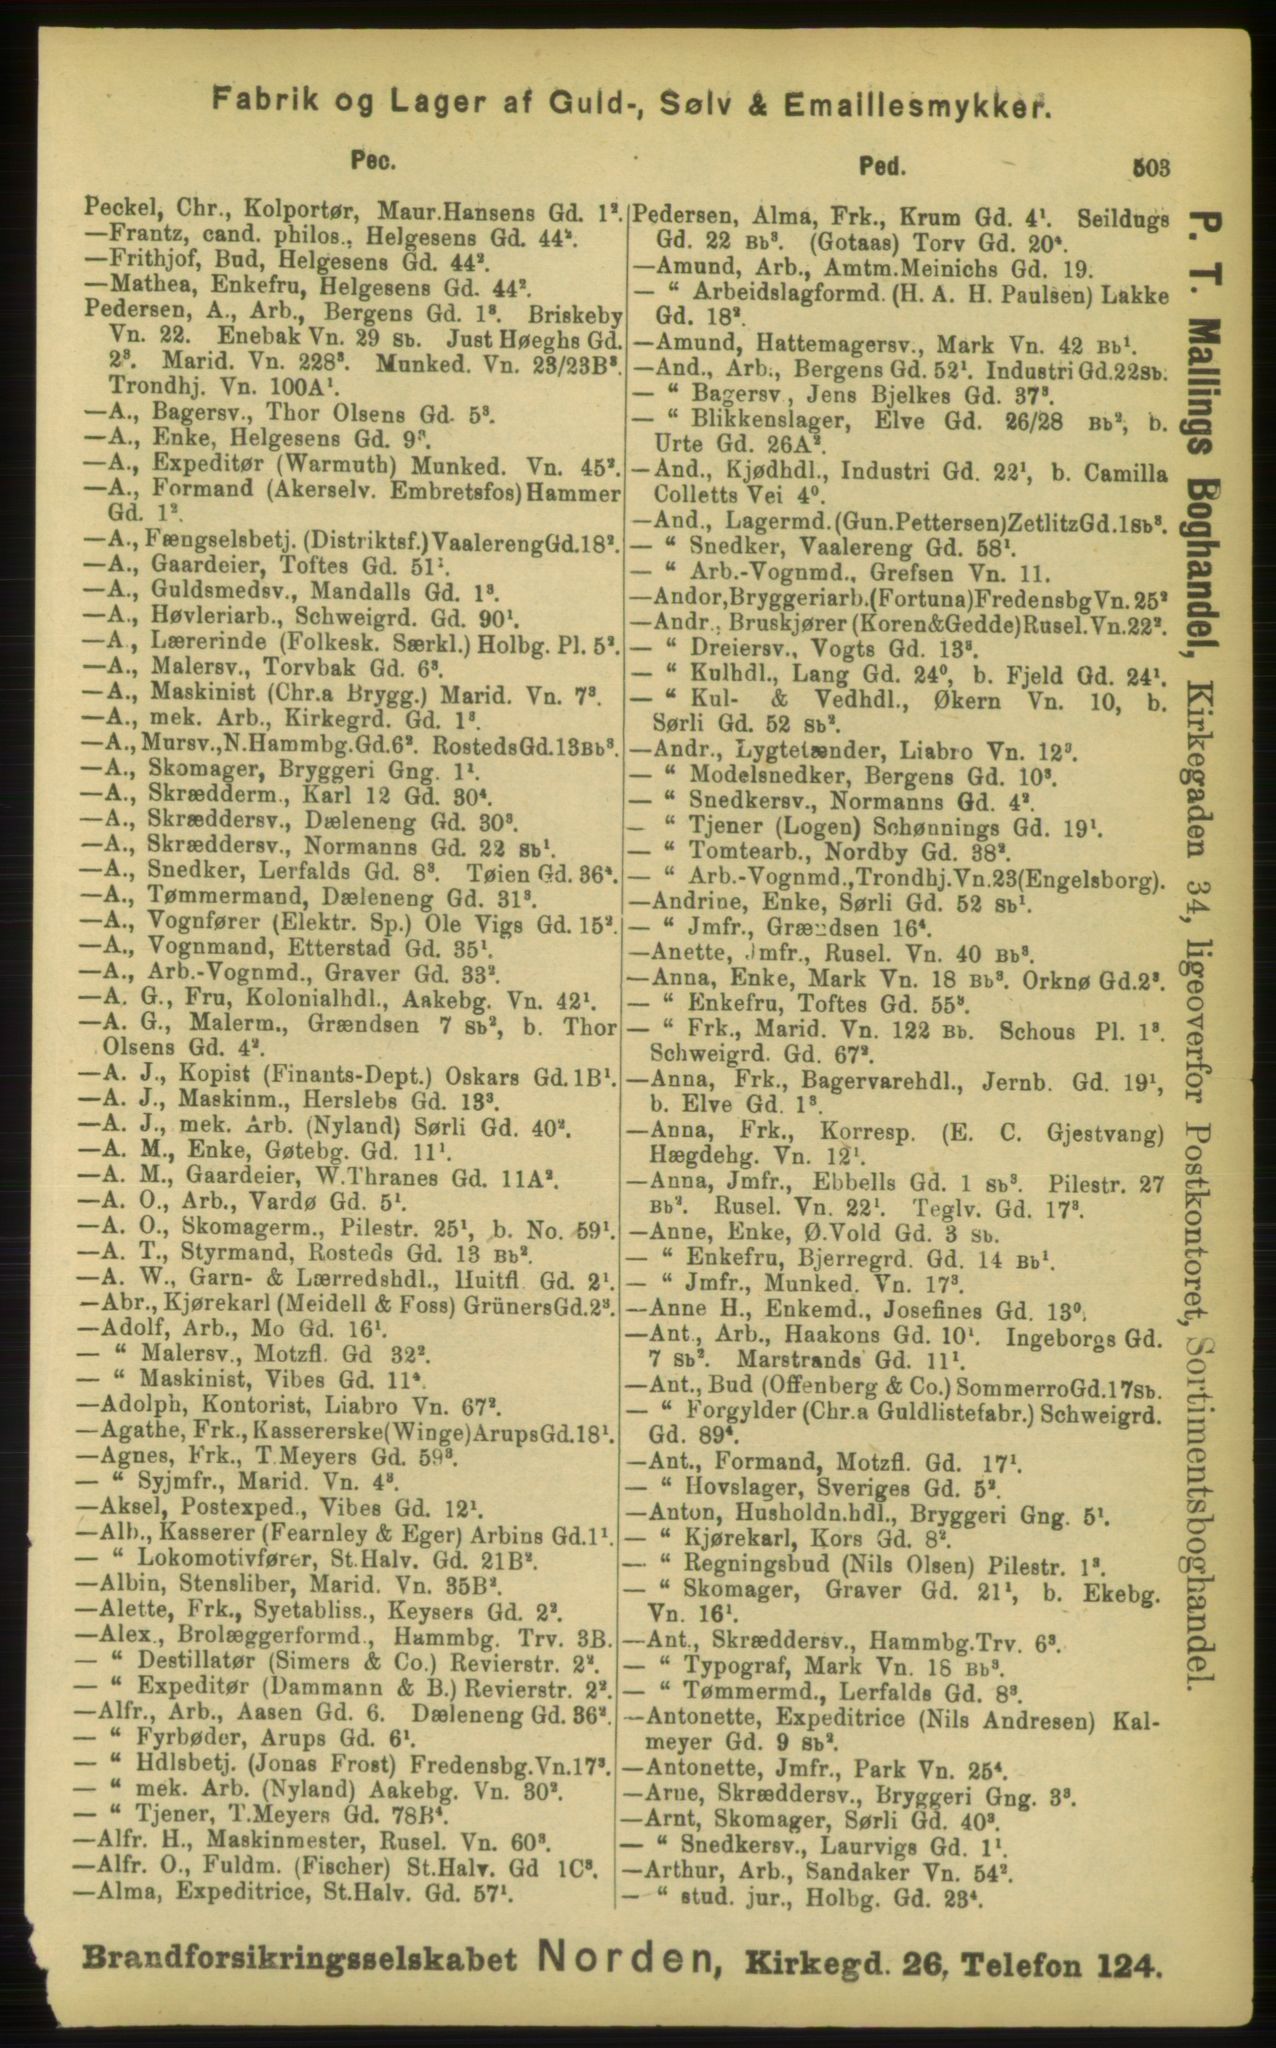 Fabrik og Lager af Guld-, Sølv & Emaillesmykker.
Pec.
Peckel, Chr., Kolportør, Maur.Hansens Gd. 1².
—Frantz, cand. philos., Helgesens Gd. 44².
—Frithjof, Bud, Helgesens Gd. 44².
—Mathea, Enkefru, Helgesens Gd. 44².
Pedersen, A., Arb., Bergens Gd. 1³. Briskeby
Vn. 22. Enebak Vn. 29 Sb. Just Høeghs Gd.
2³. Marid. Vn. 228³. Munked. Vn. 23/23B³.
Trondhj. Vn. 100A¹.
—A., Bagersv., Thor Olsens Gd. 5³.
—A., Enke, Helgesens Gd. 9³.
—A., Expeditør (Warmuth) Munked. Vn. 45².
—A., Formand (Akerselv. Embretsfos) Hammer
Gd. 1².
—A., Fængselsbetj. (Distriktsf.) VaalerengGd.18².
—A., Gaardeier, Toftes Gd. 51¹.
—A., Guldsmedsv., Mandalls Gd. 1³.
—A., Høvleriarb., Schweigrd. Gd. 90¹.
—A., Lærerinde (Folkesk. Særkl.) Holbg. Pl. 5².
—A., Malersv., Torvbak Gd. 6³.
—A., Maskinist (Chr.a Brygg.) Marid. Vn. 7³.
—A., mek. Arb., Kirkegrd. Gd. 1³.
—A., Mursv.,N.Hammbg.Gd.6². RostedsGd.13Bb³.
—A., Skomager, Bryggeri Gng. 1¹.
—A., Skrædderm., Karl 12 Gd. 30⁴.
—A., Skræddersv., Dæleneng Gd. 30³.
—A., Skræddersv., Normanns Gd. 22 Sb¹.
—A., Snedker, Lerfalds Gd. 8³. Tøien Gd. 36⁴.
—A., Tømmermand, Dæleneng Gd. 31³.
—A., Vognfører (Elektr. Sp.) Ole Vigs Gd. 15².
—A., Vognmand, Etterstad Gd. 35¹.
—A., Arb.-Vognmd., Graver Gd. 33².
—A. G., Fru, Kolonialhdl., Aakebg. Vn. 42¹.
—A. G., Malerm., Grændsen 7 Sb², b. Thor
Olsens Gd. 4².
—A. J., Kopist (Finants-Dept.) Oskars Gd.1B¹.
—A. J., Maskinm., Herslebs Gd. 13³.
—A. J., mek. Arb. (Nyland) Sørli Gd. 40².
—A. M., Enke, Gøtebg. Gd. 11¹.
—A. M., Gaardeier, W.Thranes Gd. 11A².
—A. O., Arb., Vardø Gd. 5¹.
—A. O., Skomagerm., Pilestr. 25¹, b. No. 59¹.
—A. T., Styrmand, Rosteds Gd. 13 Bb².
—A. W., Garn- & Lærredshdl., Huitfl. Gd. 2¹.
—Abr., Kjørekarl (Meidell & Foss) GrünersGd.2³.
—Adolf, Arb., Mo Gd. 16¹.
— “ Malersv., Motzfl. Gd 32².
— “ Maskinist, Vibes Gd. 11⁴.
—Adolph, Kontorist, Liabro Vn. 67².
—Agathe, Frk., Kassererske(Winge)ArupsGd.18¹.
—Agnes, Frk., T.Meyers Gd. 59³.
— “ Syjmfr., Marid. Vn. 4³.
—Aksel, Postexped., Vibes Gd. 12¹.
—Alb., Kasserer (Fearnley & Eger) Arbins Gd.1¹.
— “ Lokomotivfører, St.Halv. Gd. 21B².
—Albin, Stensliber, Marid. Vn. 35B².
—Alette, Frk., Syetabliss., Keysers Gd. 2².
—Alex., Brolæggerformd., Hammbg. Trv. 3B.
— “ Destillatør (Simers & Co.) Revierstr. 2².
— “ Expeditør (Dammann & B.) Revierstr. 2².
—Alfr., Arb., Aasen Gd. 6. Dæleneng Gd. 36².
— “ Fyrbøder, Arups Gd. 6¹.
— “ Hdlsbetj. (Jonas Frost) Fredensbg.Vn.17³.
— “ mek. Arb. (Nyland) Aakebg. Vn. 30².
— “ Tjener, T.Meyers Gd. 78B⁴.
—Alfr. H., Maskinmester, Rusel. Vn. 60³.
—Alfr. O., Fuldm. (Fischer) St.Halv. Gd 1C³.
—Alma, Expeditrice, St.Halv. Gd. 57¹.
Ped. 503
Pedersen, Alma, Frk., Krum Gd. 4¹. Seildugs
Gd. 22 Bb³. (Gotaas) Torv Gd. 20⁴.
—Amund, Arb., Amtm.Meinichs Gd. 19.
— “ Arbeidslagformd. (H. A. H. Paulsen) Lakke
Gd. 18².
—Amund, Hattemagersv., Mark Vn. 42 Bb¹.
—And., Arb., Bergens Gd. 52¹. Industri Gd.22Sb.
— “ Bagersv., Jens Bjelkes Gd. 37³.
— “ Blikkenslager, Elve Gd. 26/28 Bb², b.
Urte Gd. 26A².
—And., Kjødhdl., Industri Gd. 22¹, b. Camilla
Colletts Vei 4⁰.
—And., Lagermd.(Gun.Pettersen)ZetlitzGd.1Sb³.
— “ Snedker, Vaalereng Gd. 58¹.
— “ Arb.-Vognmd., Grefsen Vn. 11.
—Andor,Bryggeriarb.(Fortuna)FredensbgVn.25²
—Andr., Bruskjører (Koren&Gedde)Rusel.Vn.22².
— “ Dreiersv., Vogts Gd. 13³.
— “ Kulhdl., Lang Gd. 24⁰, b. Fjeld Gd. 24¹.
— “ Kul- & Vedhdl., Økern Vn. 10, b.
Sørli Gd. 52 Sb².
—Andr., Lygtetænder, Liabro Vn. 12³.
— “ Modelsnedker, Bergens Gd. 10³.
— “ Snedkersv., Normanns Gd. 4².
— “ Tjener (Logen) Schønnings Gd. 19¹.
— “ Tomtearb., Nordby Gd. 38².
— “ Arb.-Vognmd.,Trondhj.Vn.23(Engelsborg).
—Andrine, Enke, Sørli Gd. 52 Sb¹.
— “ Jmfr., Grændsen 16⁴.
—Anette, Jmfr., Rusel. Vn. 40 Bb³.
—Anna, Enke, Mark Vn. 18 Bb³. Orknø Gd.2³.
— “ Enkefru, Toftes Gd. 55³.
— “ Frk., Marid. Vn. 122 Bb. Schous Pl. 1³.
Schweigrd. Gd. 67².
—Anna, Frk., Bagervarehdl., Jernb. Gd. 19¹,
b. Elve Gd. 1³.
—Anna, Frk., Korresp. (E. C. Gjestvang)
Hægdehg. Vn. 12¹.
—Anna, Jmfr., Ebbells Gd. 1 Sb³. Pilestr. 27
Bb². Rusel. Vn. 22¹. Teglv. Gd. 17³.
—Anne, Enke, Ø.Vold Gd. 3 Sb.
— “ Enkefru, Bjerregrd. Gd. 14 Bb¹.
— “ Jmfr., Munked. Vn. 17³.
—Anne H., Enkemd., Josefines Gd. 13⁰.
—Ant., Arb., Haakons Gd. 10¹. Ingeborgs Gd.
7 Sb². Marstrands Gd. 11¹.
—Ant., Bud (Offenberg & Co.) SommerroGd.17Sb.
— “ Forgylder (Chr.a Guldlistefabr.) Schweigrd.
Gd. 89⁴.
—Ant., Formand, Motzfl. Gd. 17¹.
— “ Hovslager, Sveriges Gd. 5².
—Anton, Husholdn.hdl., Bryggeri Gng. 5¹.
— “ Kjørekarl, Kors Gd. 8².
— “ Regningsbud (Nils Olsen) Pilestr. 1³.
— “ Skomager, Graver Gd. 21¹, b. Ekebg.
Vn. 16¹.
—Ant., Skræddersv., Hammbg.Trv. 6³.
— “ Typograf, Mark Vn. 18 Bb³.
— “ Tømmermd., Lerfalds Gd. 8³.
—Antonette, Expeditrice (Nils Andresen) Kal-
meyer Gd. 9 Sb².
—Antonette, Jmfr., Park Vn. 25⁴.
—Arne, Skræddersv., Bryggeri Gng. 3³.
—Arnt, Skomager, Sørli Gd. 40³.
— “ Snedkersv., Laurvigs Gd. 1¹.
—Arthur, Arb., Sandaker Vn. 54².
— “ stud. jur., Holbg. Gd. 23⁴.
P. T. Mallings Boghandel, Kirkegaden 34, ligeoverfor Postkontoret, Sortimentsboghandel.
Brandforsikringsselskabet Norden, Kirkegd. 26, Telefon 124.